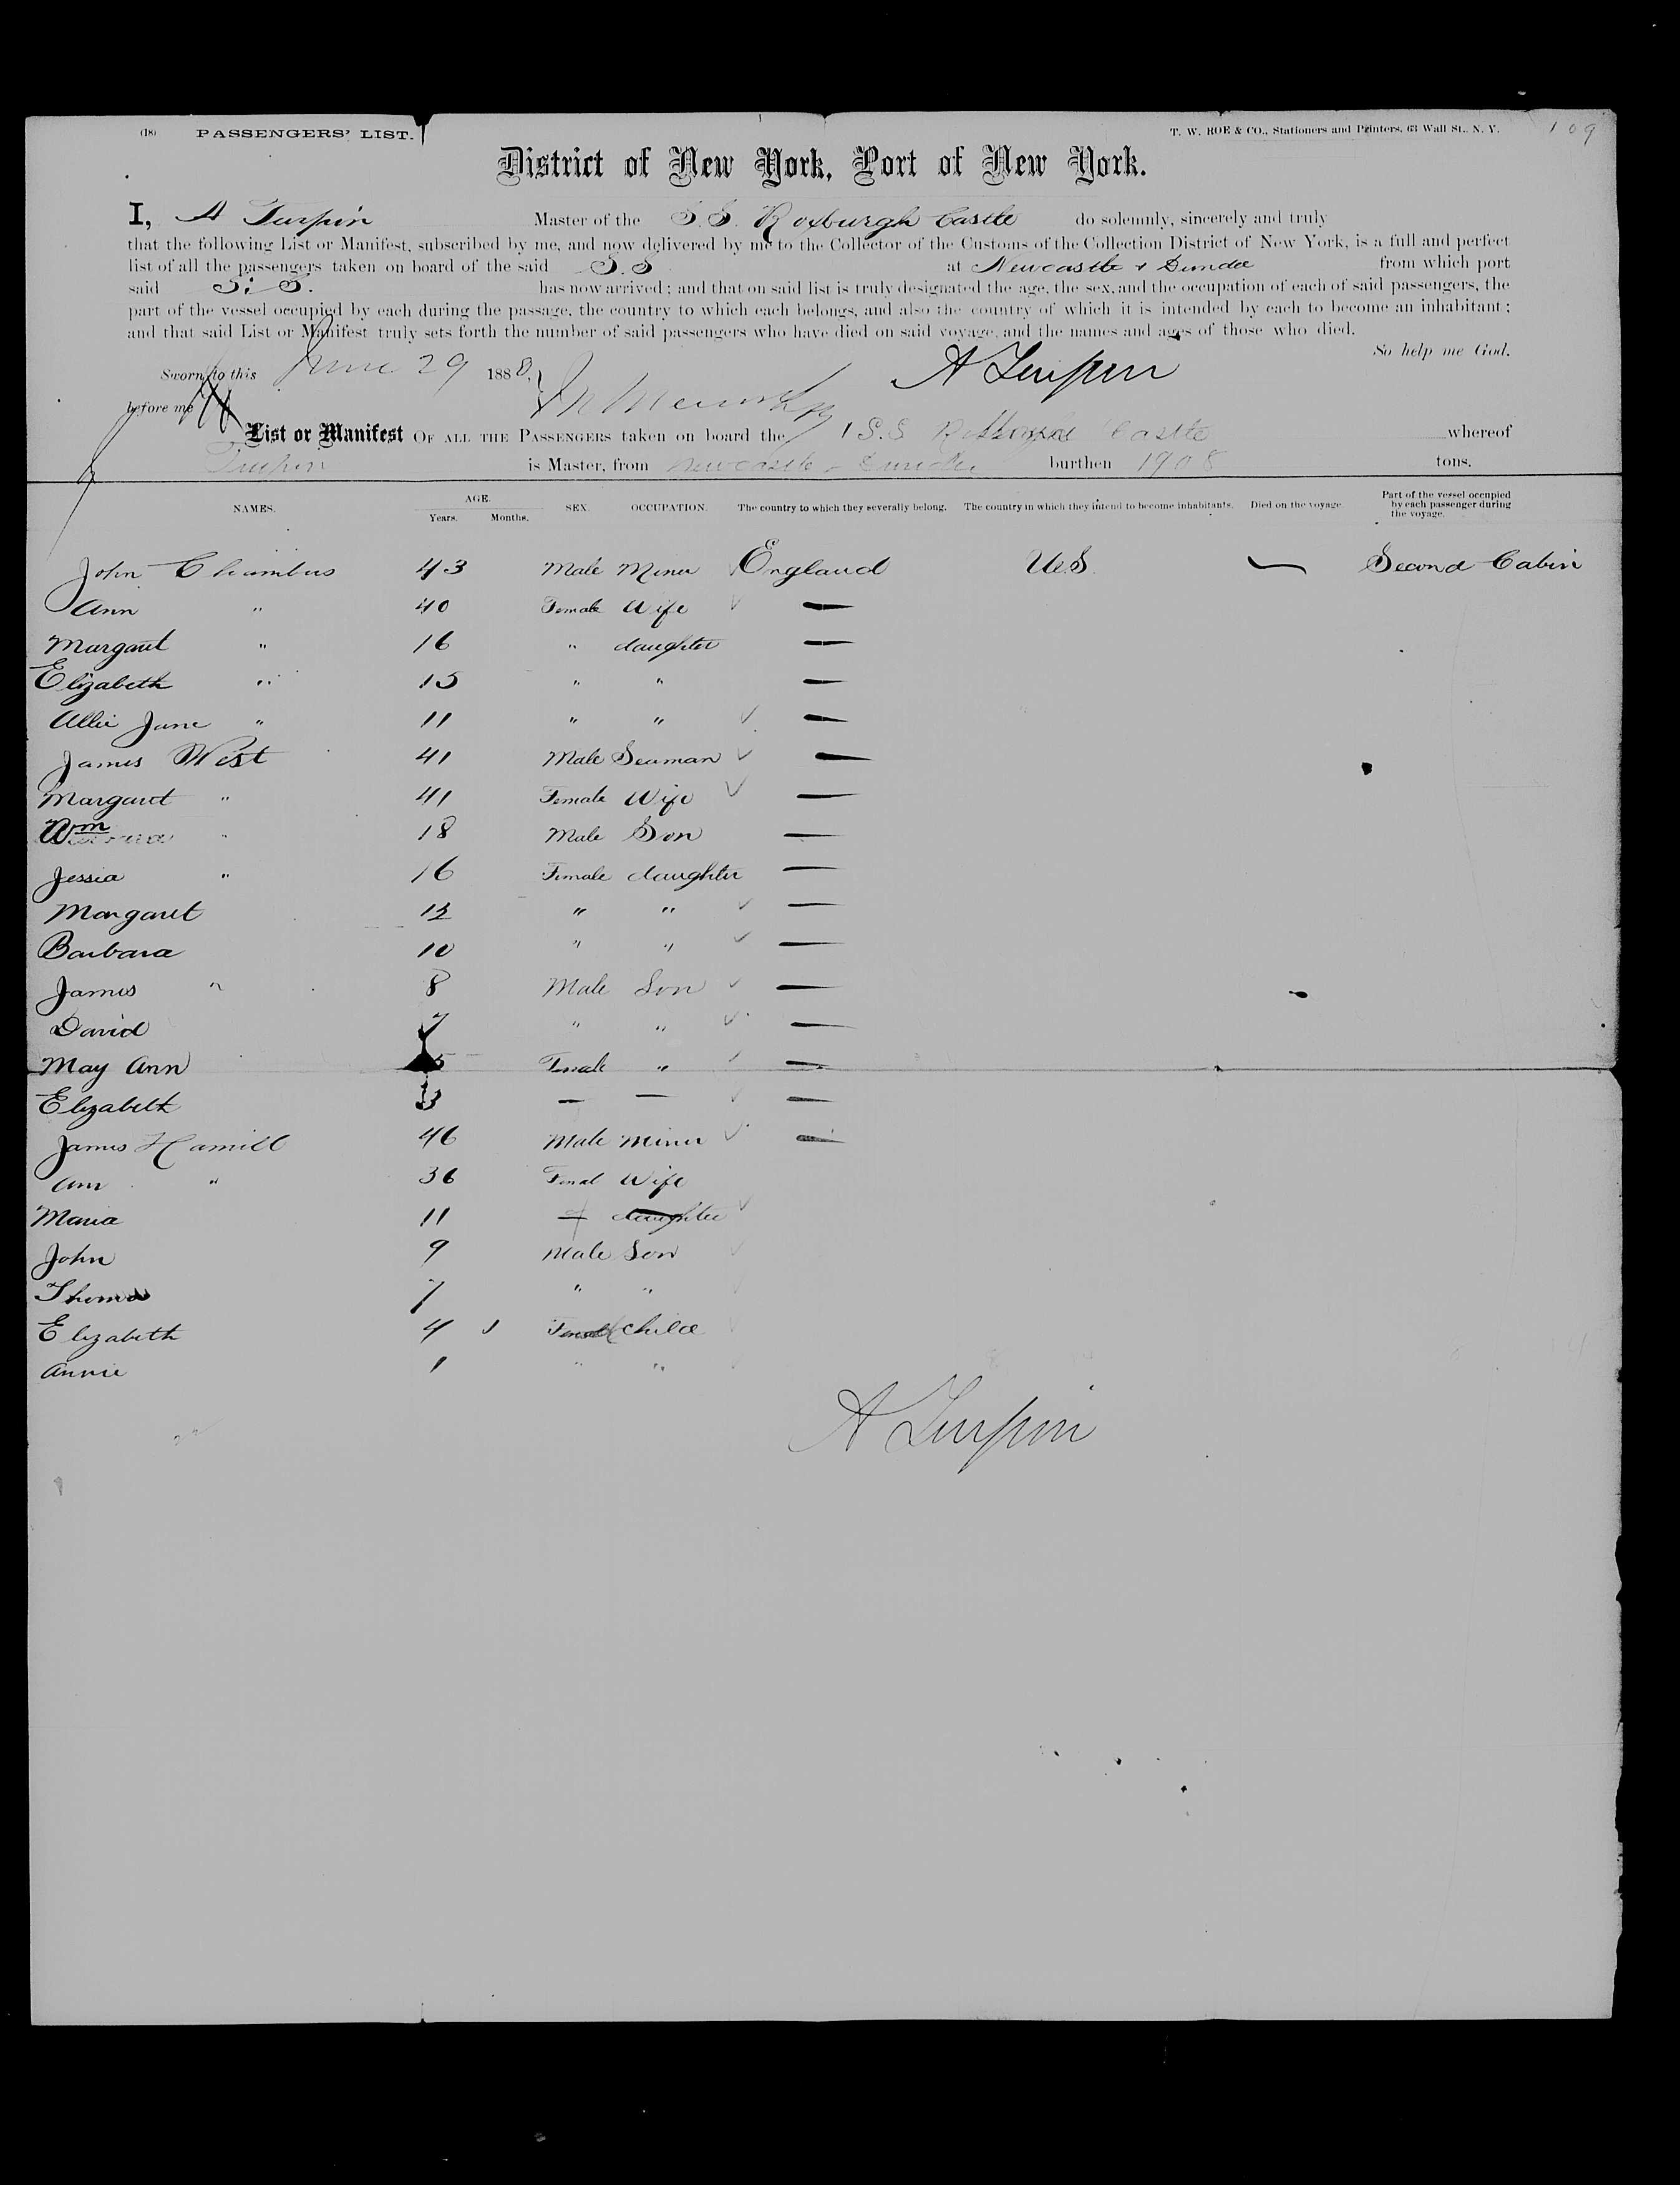 (18) PASSENGERS' LIST. T. W. ROE & CO., Stationers and Printers, 63 Wall St., N. Y. 109
District of New York, Port of New York.
I, A Turpin Master of the S. S. Roxburgh Castle do solemnly, sincerely and truly
that the following List or Manifest, subscribed by me, and now delivered by me to the Collector of the Customs of the Collection District of New York, is a full and perfect
list of all the passengers taken on board of the said S. S at Newcastle & Dundee from which port
said S. S. has now arrived; and that on said list is truly designated the age, the sex, and the occupation of each of said passengers, the
part of the vessel occupied by each during the passage, the country to which each belongs, and also the country of which it is intended by each to become an inhabitant;
and that said List or Manifest truly sets forth the number of said passengers who have died on said voyage, and the names and ages of those who died.
So help me God.
Sworn to this June 29 1888, A Turpin
before me
List or Manifest OF ALL THE PASSENGERS taken on board the S.S Castle whereof
Turpin is Master, from Newcastle & Dundee burthen 1908 tons.
NAMES. AGE. Years. Months. SEX. OCCUPATION. The country to which they severally belong. The country in which they intend to become inhabitants. Died on the voyage. Part of the vessel occupied by each passenger during the voyage.
John Chambers 43 Male Miner England U.S. — Second Cabin
Ann " 40 Female Wife —
Margaret " 16 " daughter —
Elizabeth " 15 " " —
Allie Jane " 11 " " —
James West 41 Male Seaman —
Margaret " 41 Female Wife —
Wm " 18 Male Son —
Jessia " 16 Female daughter —
Margaret 12 " " —
Barbara 10 " " —
James " 8 Male Son —
David 7 " " —
May Ann 5 Female " —
Elizabeth 3 — — —
James Hamill 46 Male Miner —
Ann " 36 Femal Wife
Maria 11 daughter
John 9 Male Son
Thomas 7 " "
Elizabeth 4 Female Child
Annie 1 " "
A Turpin